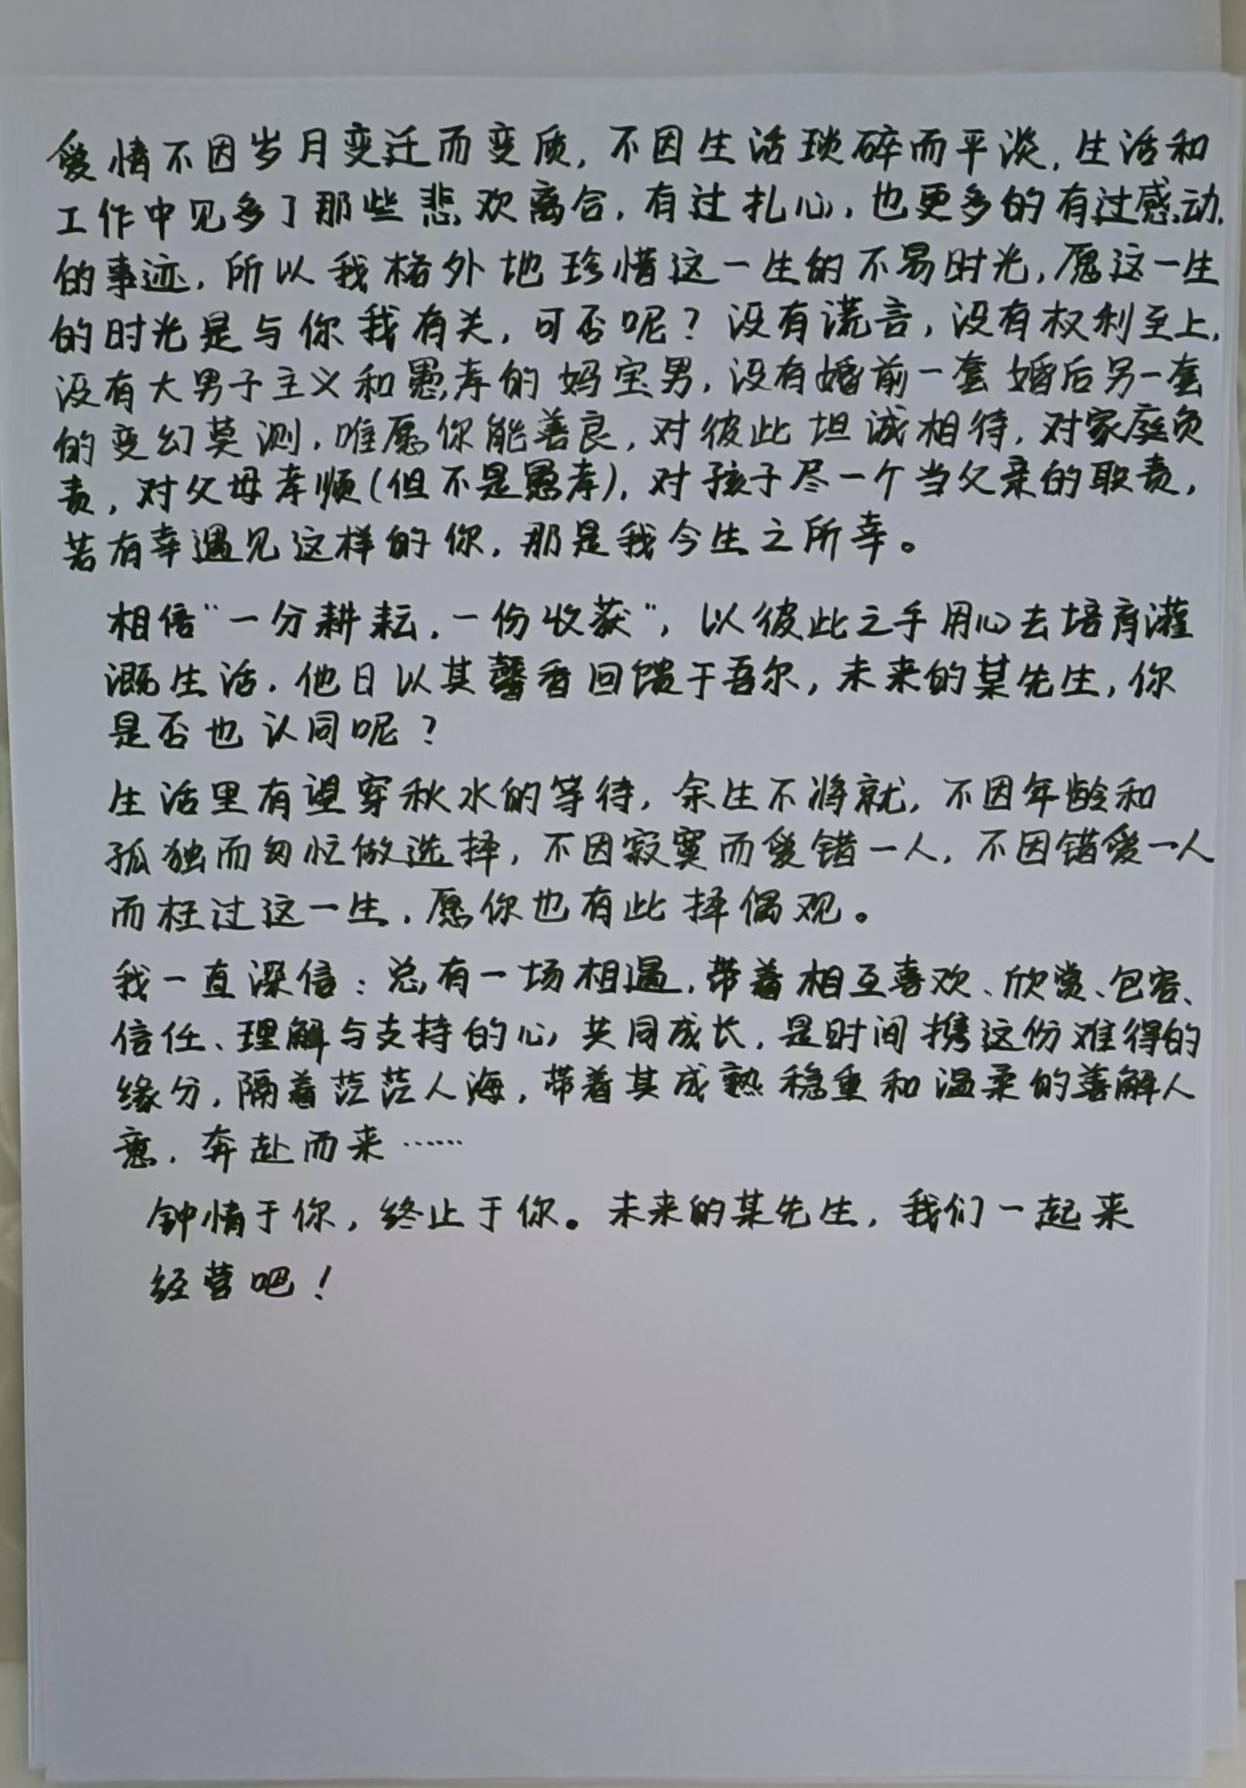 爱情不因岁月变迁而变质,不因生活琐碎而平淡,生活和
工作中见多了那些悲欢离合,有过扎心,也更多的有过感动
的事迹,所以我格外地珍惜这一生的不易时光,愿这一生
的时光是与你我有关,可否呢?没有谎言,没有权利至上,
没有大男子主义和愚孝的妈宝男,没有婚前一套婚后另一套
的变幻莫测,唯愿你能善良,对彼此坦诚相待,对家庭负
责,对父母孝顺(但不是愚孝),对孩子尽一个当父亲的职责,
若有幸遇见这样的你,那是我今生之所幸。
相信“一分耕耘,一份收获”,以彼此之手用心去培育灌
溉生活,他日以其馨香回馈于吾尔,未来的某先生,你
是否也认同呢?
生活里有望穿秋水的等待,余生不将就,不因年龄和
孤独而匆忙做选择,不因寂寞而爱错一人,不因错爱一人
而枉过这一生,愿你也有此择偶观。
我一直深信:总有一场相遇,带着相互喜欢、欣赏、包容、
信任、理解与支持的心共同成长,是时间携这份难得的
缘分,隔着茫茫人海,带着其成熟稳重和温柔的善解人
意,奔赴而来……
钟情于你,终止于你。未来的某先生,我们一起来
经营吧!